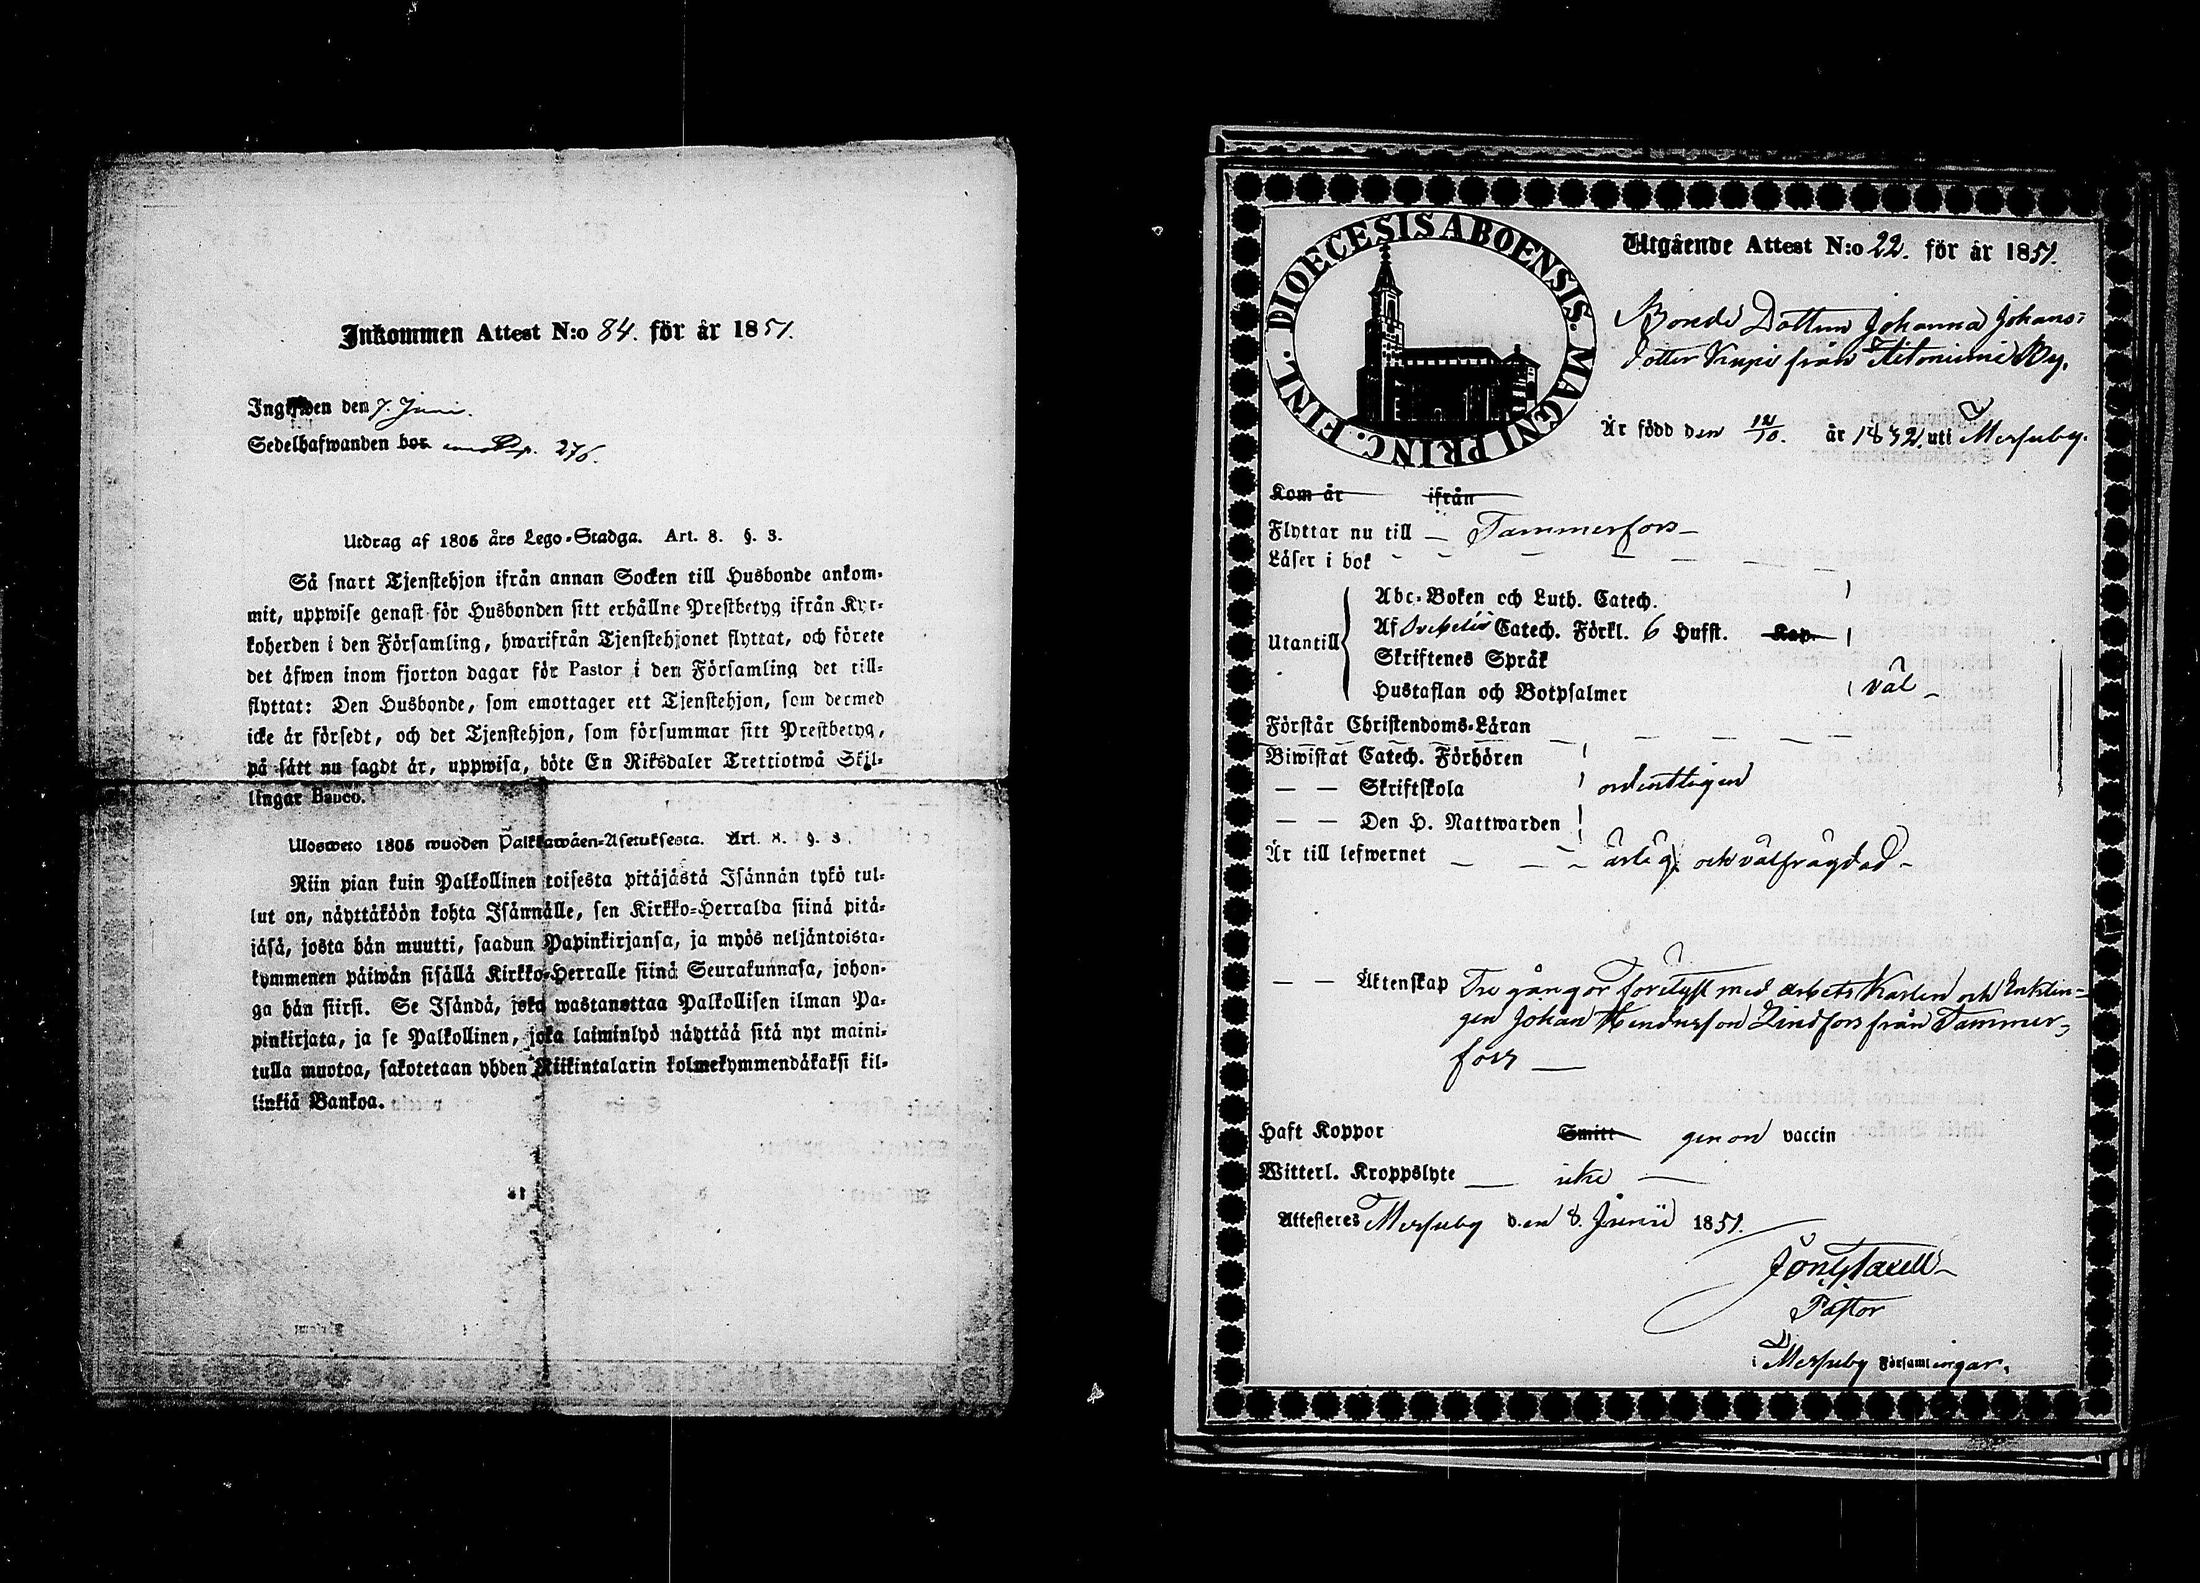 Inkommen Attest N:o 84. för år 1851.
Ingifwen den 7. Juni.
Sedelhafwanden bor p. 276.
Utdrag af 1805 års Lego-Stadga. Art. 8. §. 3.
Så snart Tjenstehjon ifrån annan Socken till Husbonde ankom-
mit, uppwise genast för Husbonden sitt erhållne Prestbetyg ifrån Kyr-
koherden i den Församling, hwarifrån Tjenstehjonet flyttat, och förete
det äfwen inom fjorton dagar för Pastor i den Församling det till-
flyttat: Den Husbonde, som emottager ett Tjenstehjon, som dermed
icke är försedt, och det Tjenstehjon, som försummar sitt Prestbetyg,
på sätt nu sagdt är, uppwisa, böte En Riksdaler Trettiotwå Skil-
lingar Banco.
Uloswето 1805 wuoden Palkkawäen-Asetuksesta. Art. 8. §. 3.
Niin pian kuin Palkollinen toisesta pitäjästä Isännän tykö tul-
lut on, näyttäköön kohta Isännälle, sen Kirkko-Herralda siinä pitä-
jäsä, josta hän muutti, saadun Papinkirjansa, ja myös neljäntoista-
kymmenen päiwän sisällä Kirkko-Herralle siinä Seurakunnasa, johon-
ga hän siirsi. Se Isändä, joka wastanottaa Palkollisen ilman Pa-
pinkirjata, ja se Palkollinen, joka laiminlyö näyttää sitä nyt maini-
tulla muotoa, sakotetaan yhden Riikintalarin kolmekymmendäkaksi kil-
linkiä Bankoa.
DIOECESIS ABOENSIS. MAGNI PRINC. FINL.
Utgående Attest N:o 22. för år 1851.
Bonde Dottern Johanna Johans-
dotter Knupi från Aitoniemi By.
Är född den 12/10. år 1832 uti Messuby.
Kom år ifrån
Flyttar nu till — Tammerfors —
Läser i bok
Abc-Boken och Luth. Catech.
Utantill Af Svebelii Catech. Förkl. 6 Hufst. Kap.
Skriftenes Språk
Hustaflan och Botpsalmer väl —
Förstår Christendoms-Läran
Biwistat Catech. Förhören
— — Skriftskola ordentligen
— — Den H. Nattwarden
Är till lefwernet — — — ärlig och välfrägdad —
— — Äktenskap Tre gångor förelyst med arbets Karlen och Enklin-
gen Johan Hendersson Lindfors från Tammer-
fors —
Haft Koppor Smitt genom vaccin
Witterl. Kroppslyte — icke —
Attesteres Messuby den 8. Junii 1851.
Pastor
i Messuby Församlingar.